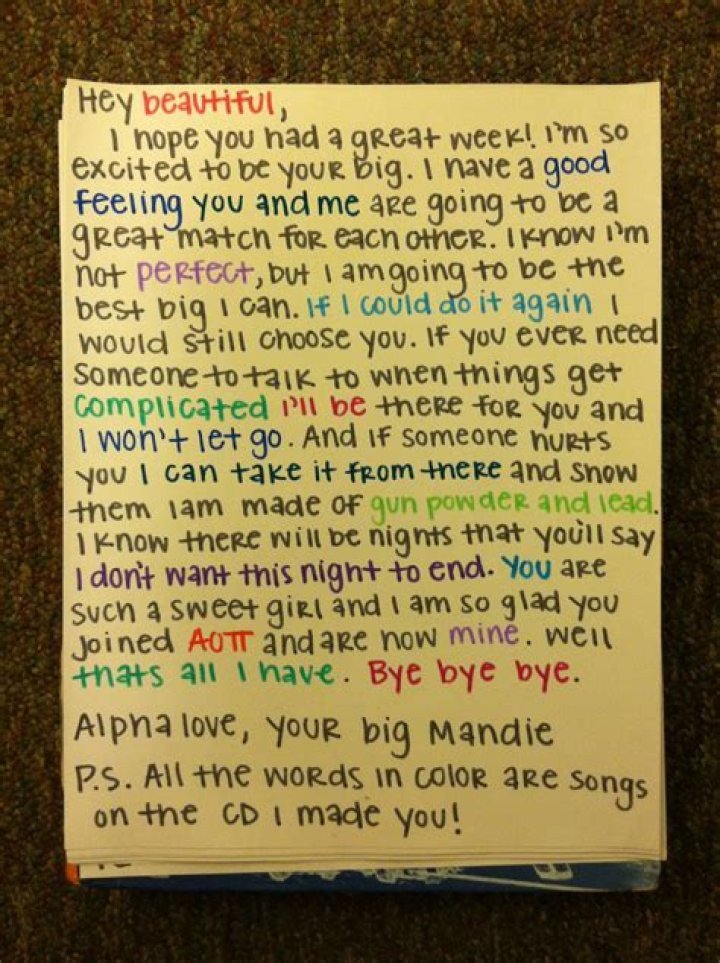 Hey beautiful,
I hope you had a great week! I'm so
excited to be your big. I have a good
feeling you and me are going to be a
great match for each other. I know I'm
not perfect, but I am going to be the
best big I can. If I could do it again I
would still choose you. If you ever need
someone to talk to when things get
complicated I'll be there for you and
I won't let go. And if someone hurts
you I can take it from there and show
them I am made of gun powder and lead.
I know there will be nights that you'll say
I don't want this night to end. You are
such a sweet girl and I am so glad you
joined AOΠ and are now mine. Well
thats all I have. Bye bye bye.
Alpha love, your big Mandie
P.S. All the words in color are songs
on the CD I made you!